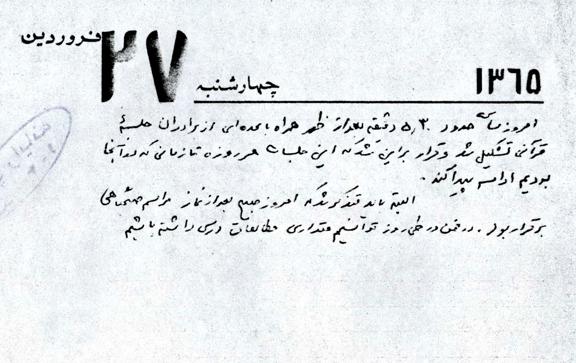 ۲۷ فروردین
چهارشنبه ۱۳۶۵
امروز ساعت حدود ۵٫۳۰ دقیقه بعدازظهر همراه با عده‌ای از برادران جلسهٔ
قرآنی تشکیل شد و قرار براین شد که این جلسات هر روزه تا زمانی که در آنجا
بودیم ادامه پیدا کند.
البته باید متذکر شد که امروز صبح بعد از نماز مراسم صبحگاهی
برقرار بود. در ضمن در طی روز توانستیم مقداری مطالعات درسی داشته باشیم